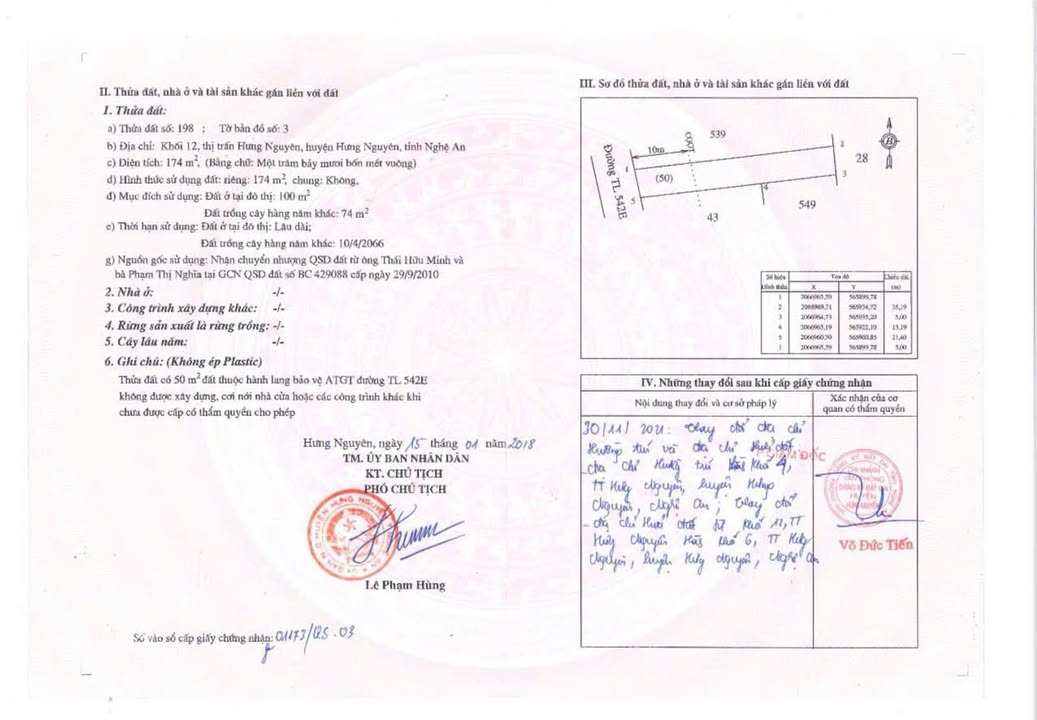 II. Thửa đất, nhà ở và tài sản khác gắn liền với đất
1. Thửa đất:
a) Thửa đất số: 198 ; Tờ bản đồ số: 3
b) Địa chỉ: Khối 12, thị trấn Hưng Nguyên, huyện Hưng Nguyên, tỉnh Nghệ An
c) Diện tích: 174 m², (Bằng chữ: Một trăm bảy mươi bốn mét vuông)
d) Hình thức sử dụng đất: riêng: 174 m², chung: Không,
đ) Mục đích sử dụng: Đất ở tại đô thị: 100 m²
Đất trồng cây hàng năm khác: 74 m²
e) Thời hạn sử dụng: Đất ở tại đô thị: Lâu dài;
Đất trồng cây hàng năm khác: 10/4/2066
g) Nguồn gốc sử dụng: Nhận chuyển nhượng QSD đất từ ông Thái Hữu Minh và
bà Phạm Thị Nghĩa tại GCN QSD đất số BC 429088 cấp ngày 29/9/2010
2. Nhà ở: -/-
3. Công trình xây dựng khác: -/-
4. Rừng sản xuất là rừng trồng: -/-
5. Cây lâu năm: -/-
6. Ghi chú: (Không ép Plastic)
Thửa đất có 50 m² đất thuộc hành lang bảo vệ ATGT đường TL 542E
không được xây dựng, cơi nới nhà cửa hoặc các công trình khác khi
chưa được cấp có thẩm quyền cho phép
Hưng Nguyên, ngày 15 tháng 01 năm 2018
TM. ỦY BAN NHÂN DÂN
KT. CHỦ TỊCH
PHÓ CHỦ TỊCH
Lê Phạm Hùng
Số vào sổ cấp giấy chứng nhận: 01173/QS.03
III. Sơ đồ thửa đất, nhà ở và tài sản khác gắn liền với đất
Đường TL 542E
10m
539
1
2
28
B
(50)
3
5
4
43
549
Số hiệu đỉnh thửa Toạ độ Chiều dài
X Y (m)
1 2066965,59 565899,78
2 2066969,71 565934,72 35,19
3 2066964,73 565935,20 5,00
4 2066963,19 565922,10 13,19
5 2066960,50 565900,85 21,40
1 2066965,59 565899,78 5,00
IV. Những thay đổi sau khi cấp giấy chứng nhận
Nội dung thay đổi và cơ sở pháp lý
Xác nhận của cơ
quan có thẩm quyền
30/11/2021: Thay đổi địa chỉ
thường trú và địa chỉ thửa đất
địa chỉ thường trú
TT Hưng Nguyên, huyện Hưng
Nguyên, Nghệ An; Thay đổi
địa chỉ thửa đất từ khối 12, TT
Hưng Nguyên khối 6, TT Hưng
Nguyên, huyện Hưng Nguyên, Nghệ An
GIÁM ĐỐC
CHI NHÁNH
VĂN PHÒNG
ĐĂNG KÝ ĐẤT ĐAI
HUYỆN
HƯNG NGUYÊN
Võ Đức Tiến